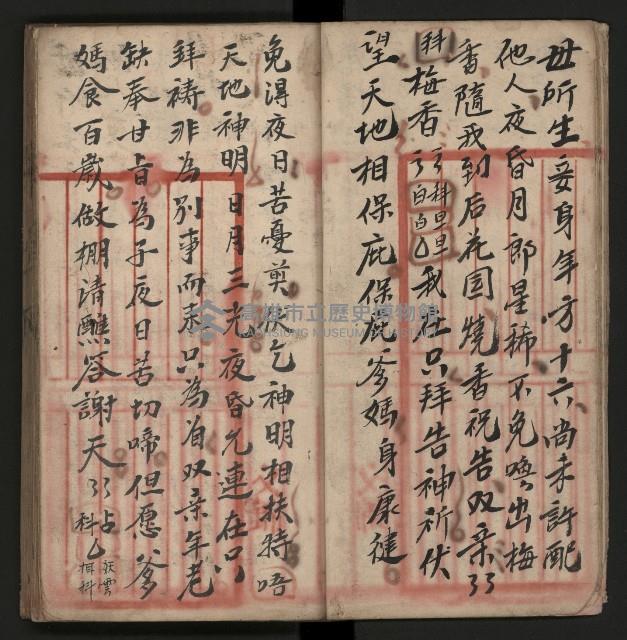 毋所生妾身年方十六尚未許配
他人夜昏月郎星稀不免喚出梅
香隨我到后花园燒香祝告双亲
科梅香 科旦 白 我在只拜告神祈伏
望天地相保庇保庇爹媽身康健
免得夜日苦憂煎 伏乞神明相扶持 唔
天地神明日月三光夜昏允連在只
拜禱非為別事而来只為着双亲年老
缺奉甘旨為子夜日苦切啼但愿爹
媽食百歲做棚清醮答謝天 占科
高雄市立歷史博物館
KAOHSIUNG MUSEUM